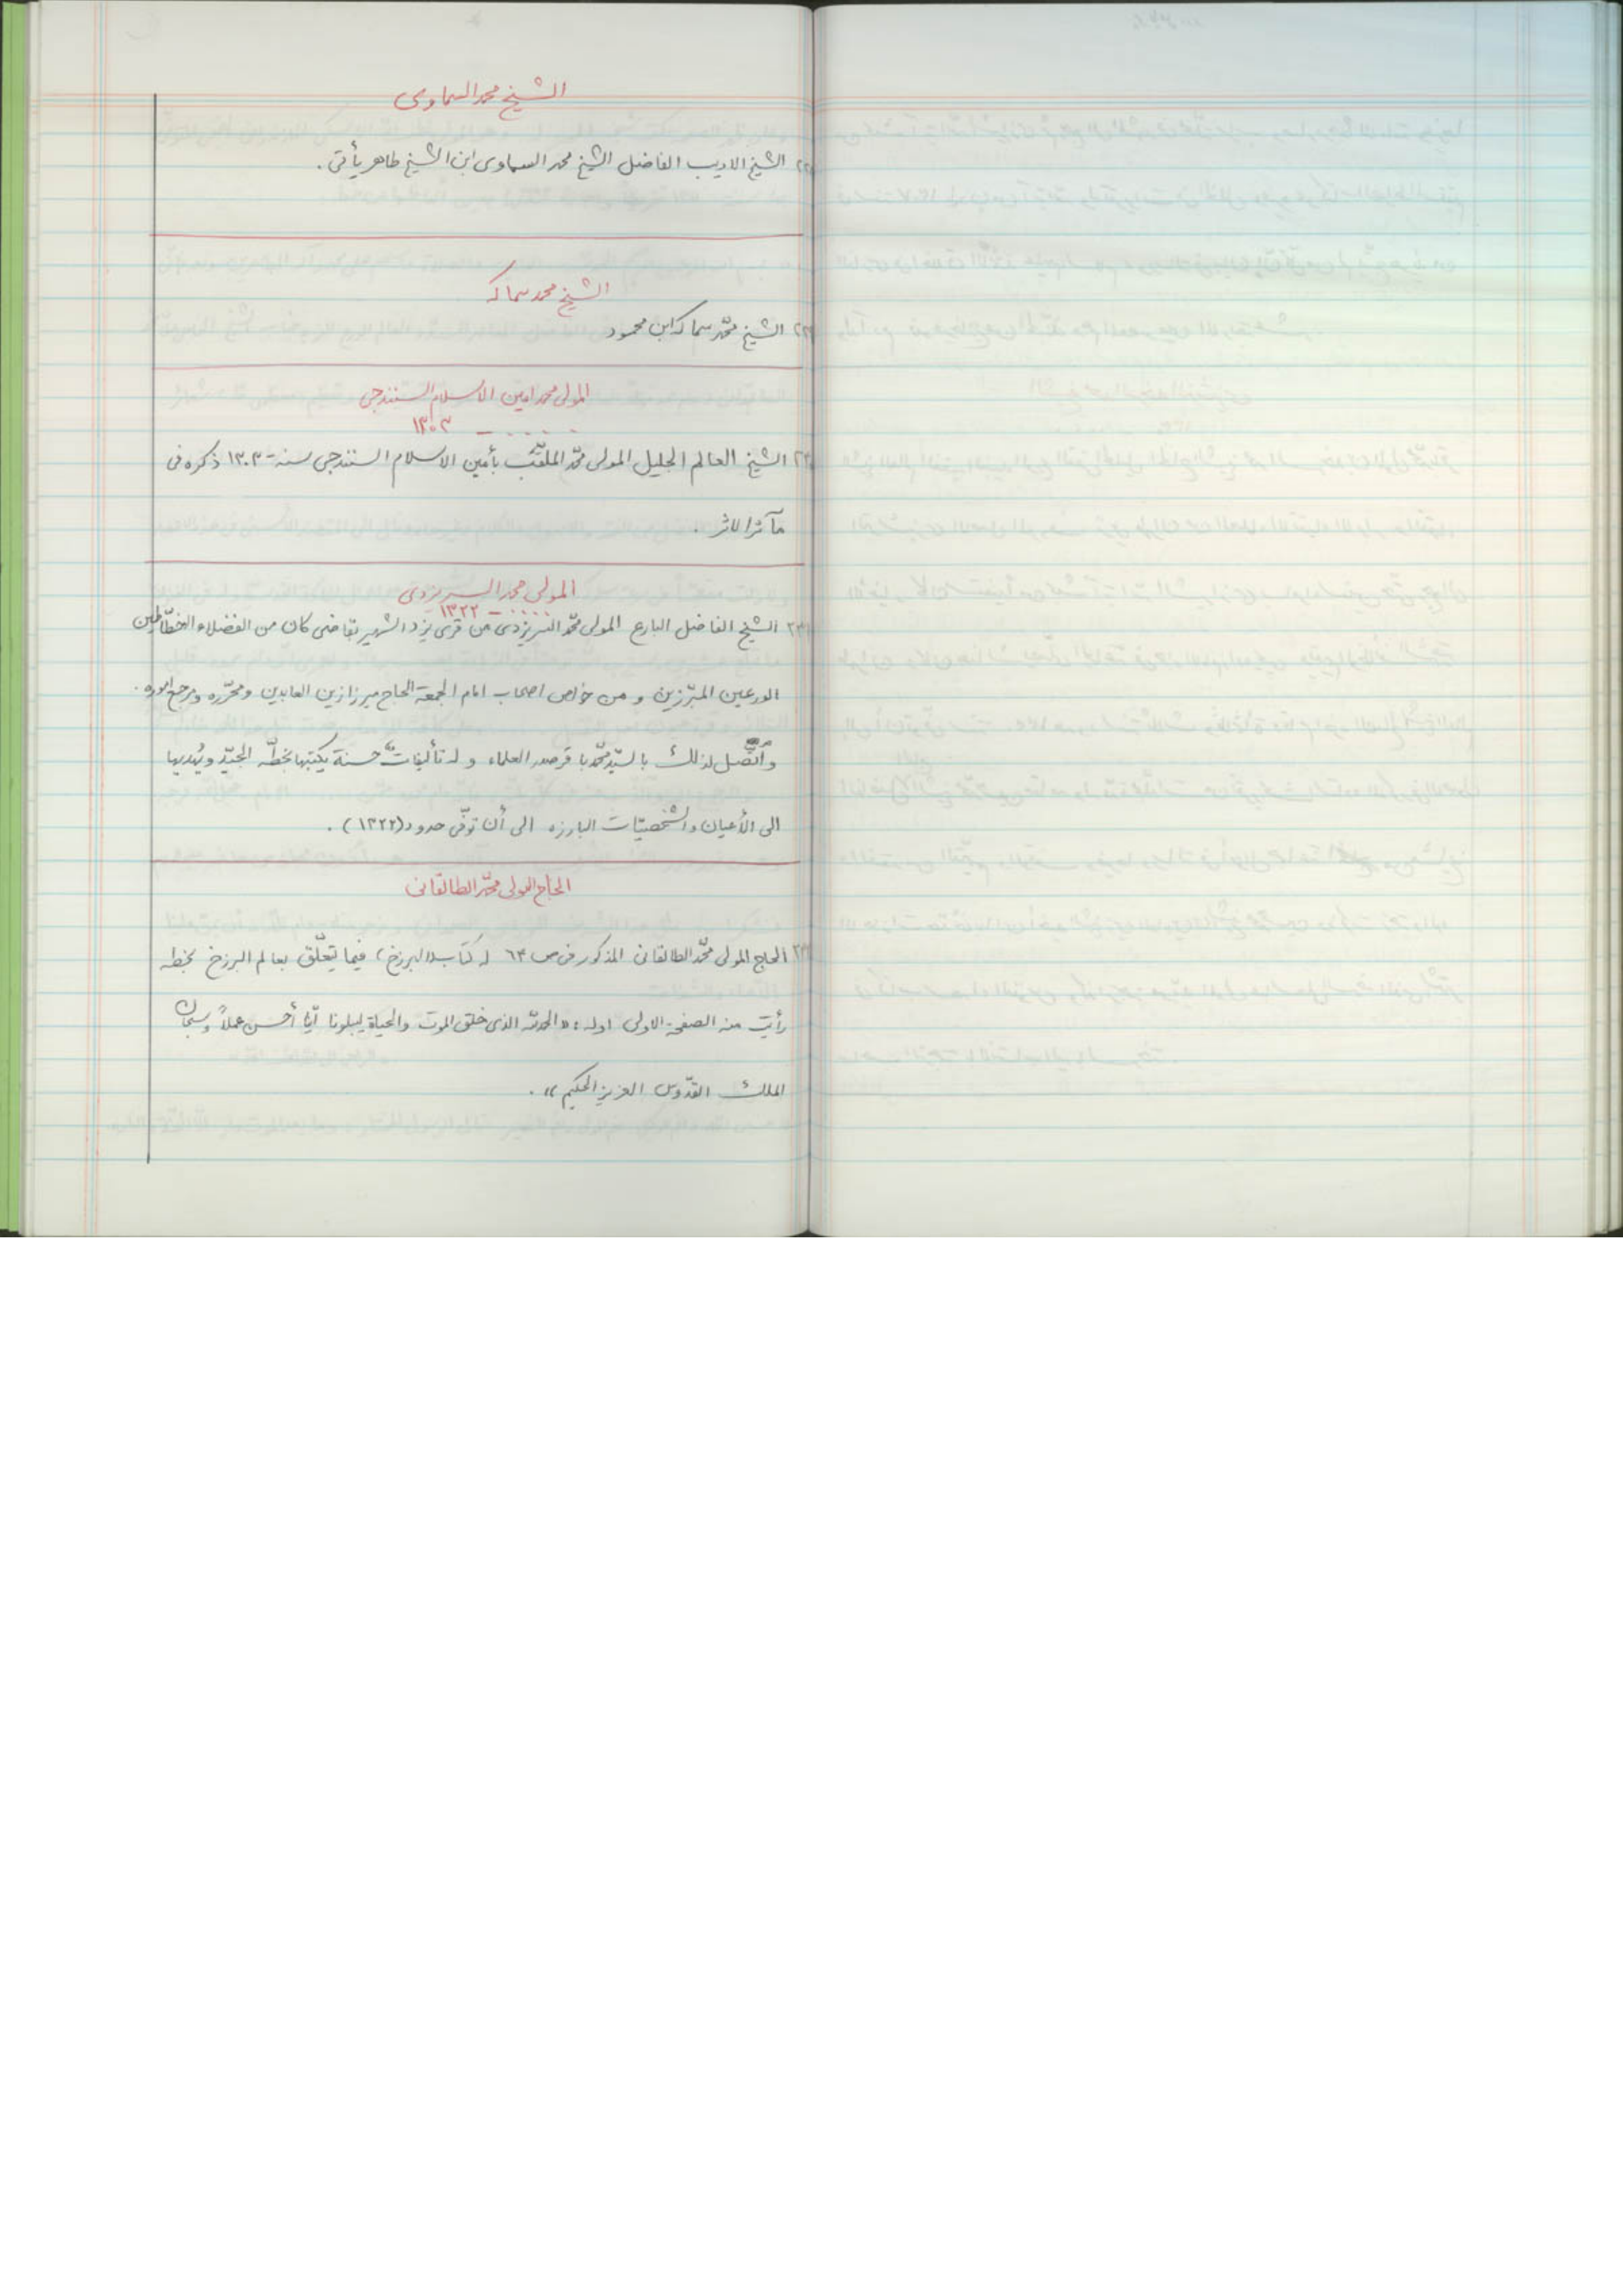 الشيخ محمد السماوى
الشيخ الاديب الفاضل الشيخ محمد السماوى ابن الشيخ طاهر يأتى .
الشيخ محمد سماكه
الشيخ محمّد سماكه ابن محمود
المولى محمد امين الاسلام السنندجى
..... – ١٣٠٣
الشيخ العالم الجليل المولى محمّد الملقّب بأمين الاسلام السنندجى سنة ١٣٠٣ ذكره فى
مآثر الاثر .
المولى محمد السريزدى
..... – ١٣٢٢
الشيخ الفاضل البارع المولى محمّد السريزدى من قرى يزد الشهير بقاضى كان من الفضلاء الخطّاطين
الورعين المبرّزين و من خواص اصحاب امام الجمعة الحاج ميرزا زين العابدين ومحرّره ومرجع اموره .
وأتّصل لذلك بالسيّد محمّد باقر صدر العلماء و له تأليفات حسنة يكتبها بخطّه الجيّد ويُهديها
الى الأعيان والشخصيّات البارزه الى أن توفّى حدود (١٣٢٢) .
الحاج المولى محمّد الطالقانى
الحاج المولى محمّد الطالقانى المذكور فى ص ٦٣ له كتاب «البرزخ» فيما يتعلّق بعالم البرزخ بخطه
رأيت منه الصفحة الاولى اوله : «الحمدلله الذى خلق الموت والحياة ليبلونا أيّنا أحسن عملاً وسبحان
الملك القدّوس العزيز الحكيم» .